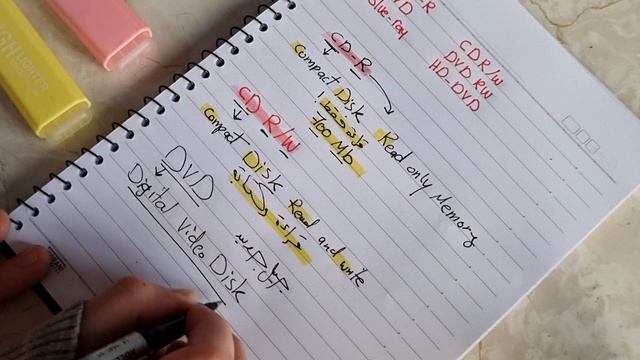 DVD R
Blue-ray
CDR/W
DVD RW
HD-DVD
CD-R
Compact Disk Read only Memory
700 Mb
CD R/W
Compact Disk Read and write
DVD
Digital Video Disk